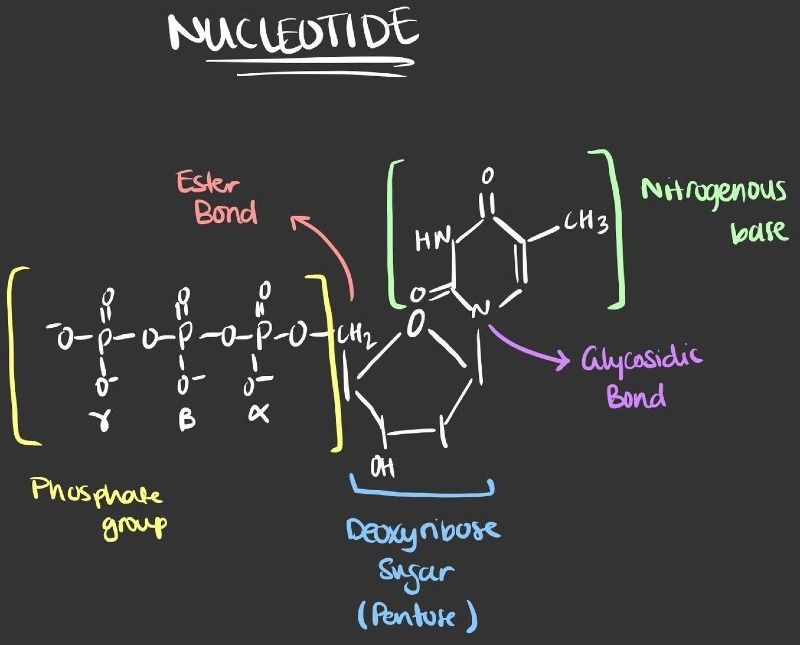 NUCLEOTIDE
Ester
Bond
Nitrogenous
base
O
HN
CH3
O
N
O O O
-O-P-O-P-O-P-O-CH2
O
O- O- O-
γ β α
OH
Glycosidic
Bond
Phosphate
group
Deoxyribose
Sugar
(Pentose)